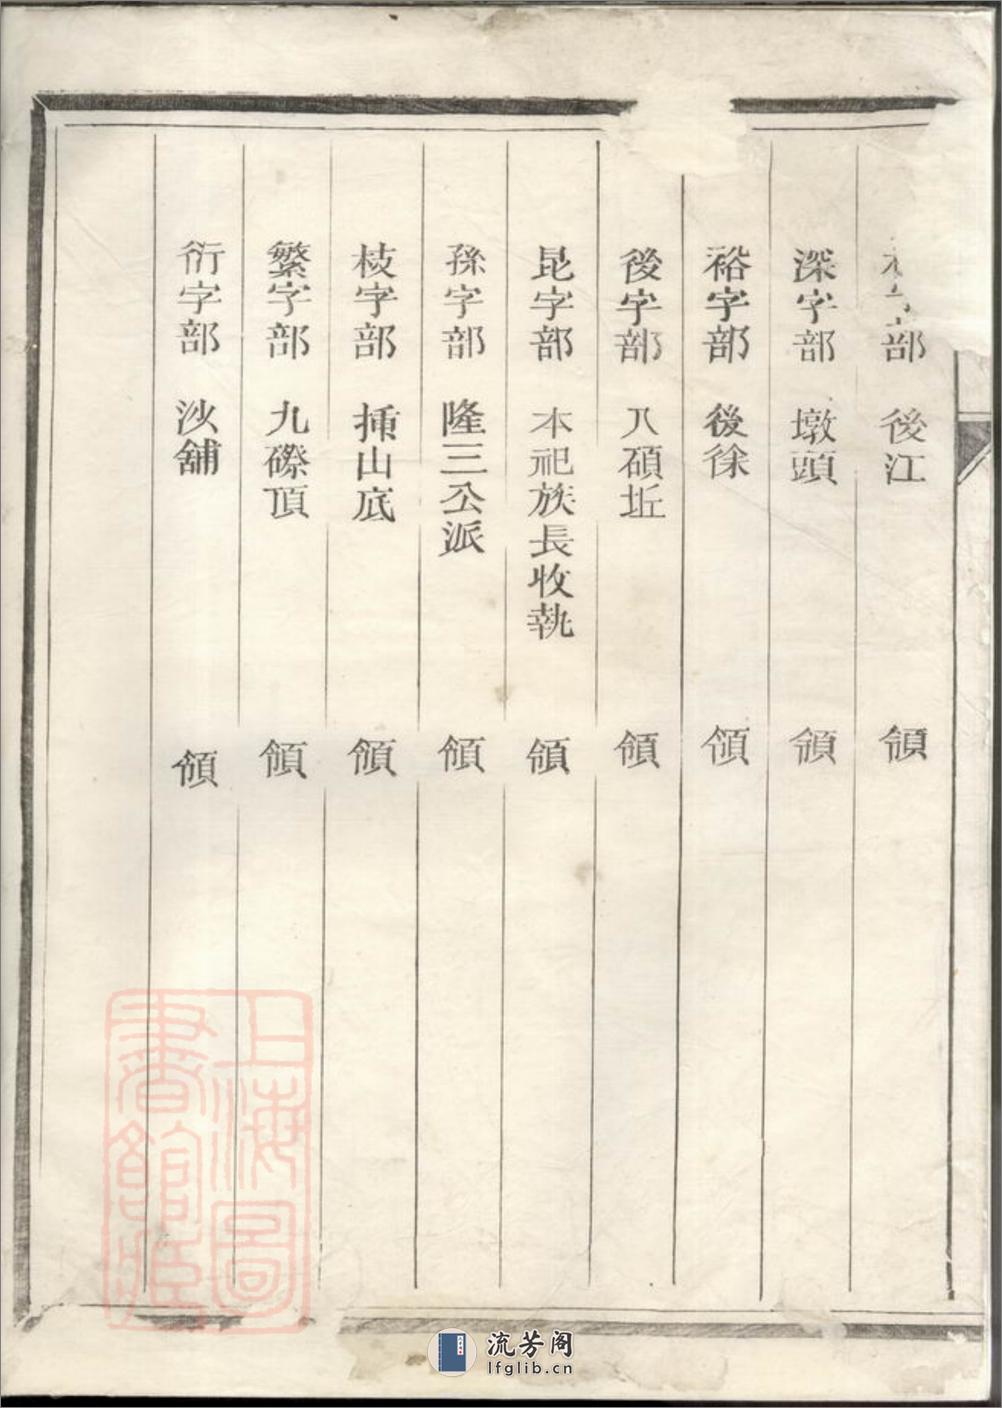 部 後江 領
深字部 墩頭 領
裕字部 後徐 領
後字部 八碩坵 領
昆字部 本祀族長收執 領
孫字部 隆三公派 領
枝字部 揷山底 領
繁字部 九磜頂 領
衍字部 沙舖 領
上海圖
書館藏
流芳阁
lfglib.cn